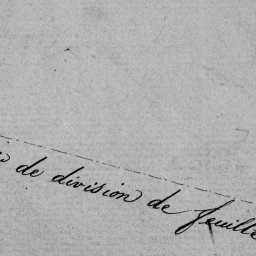 de division de feuille